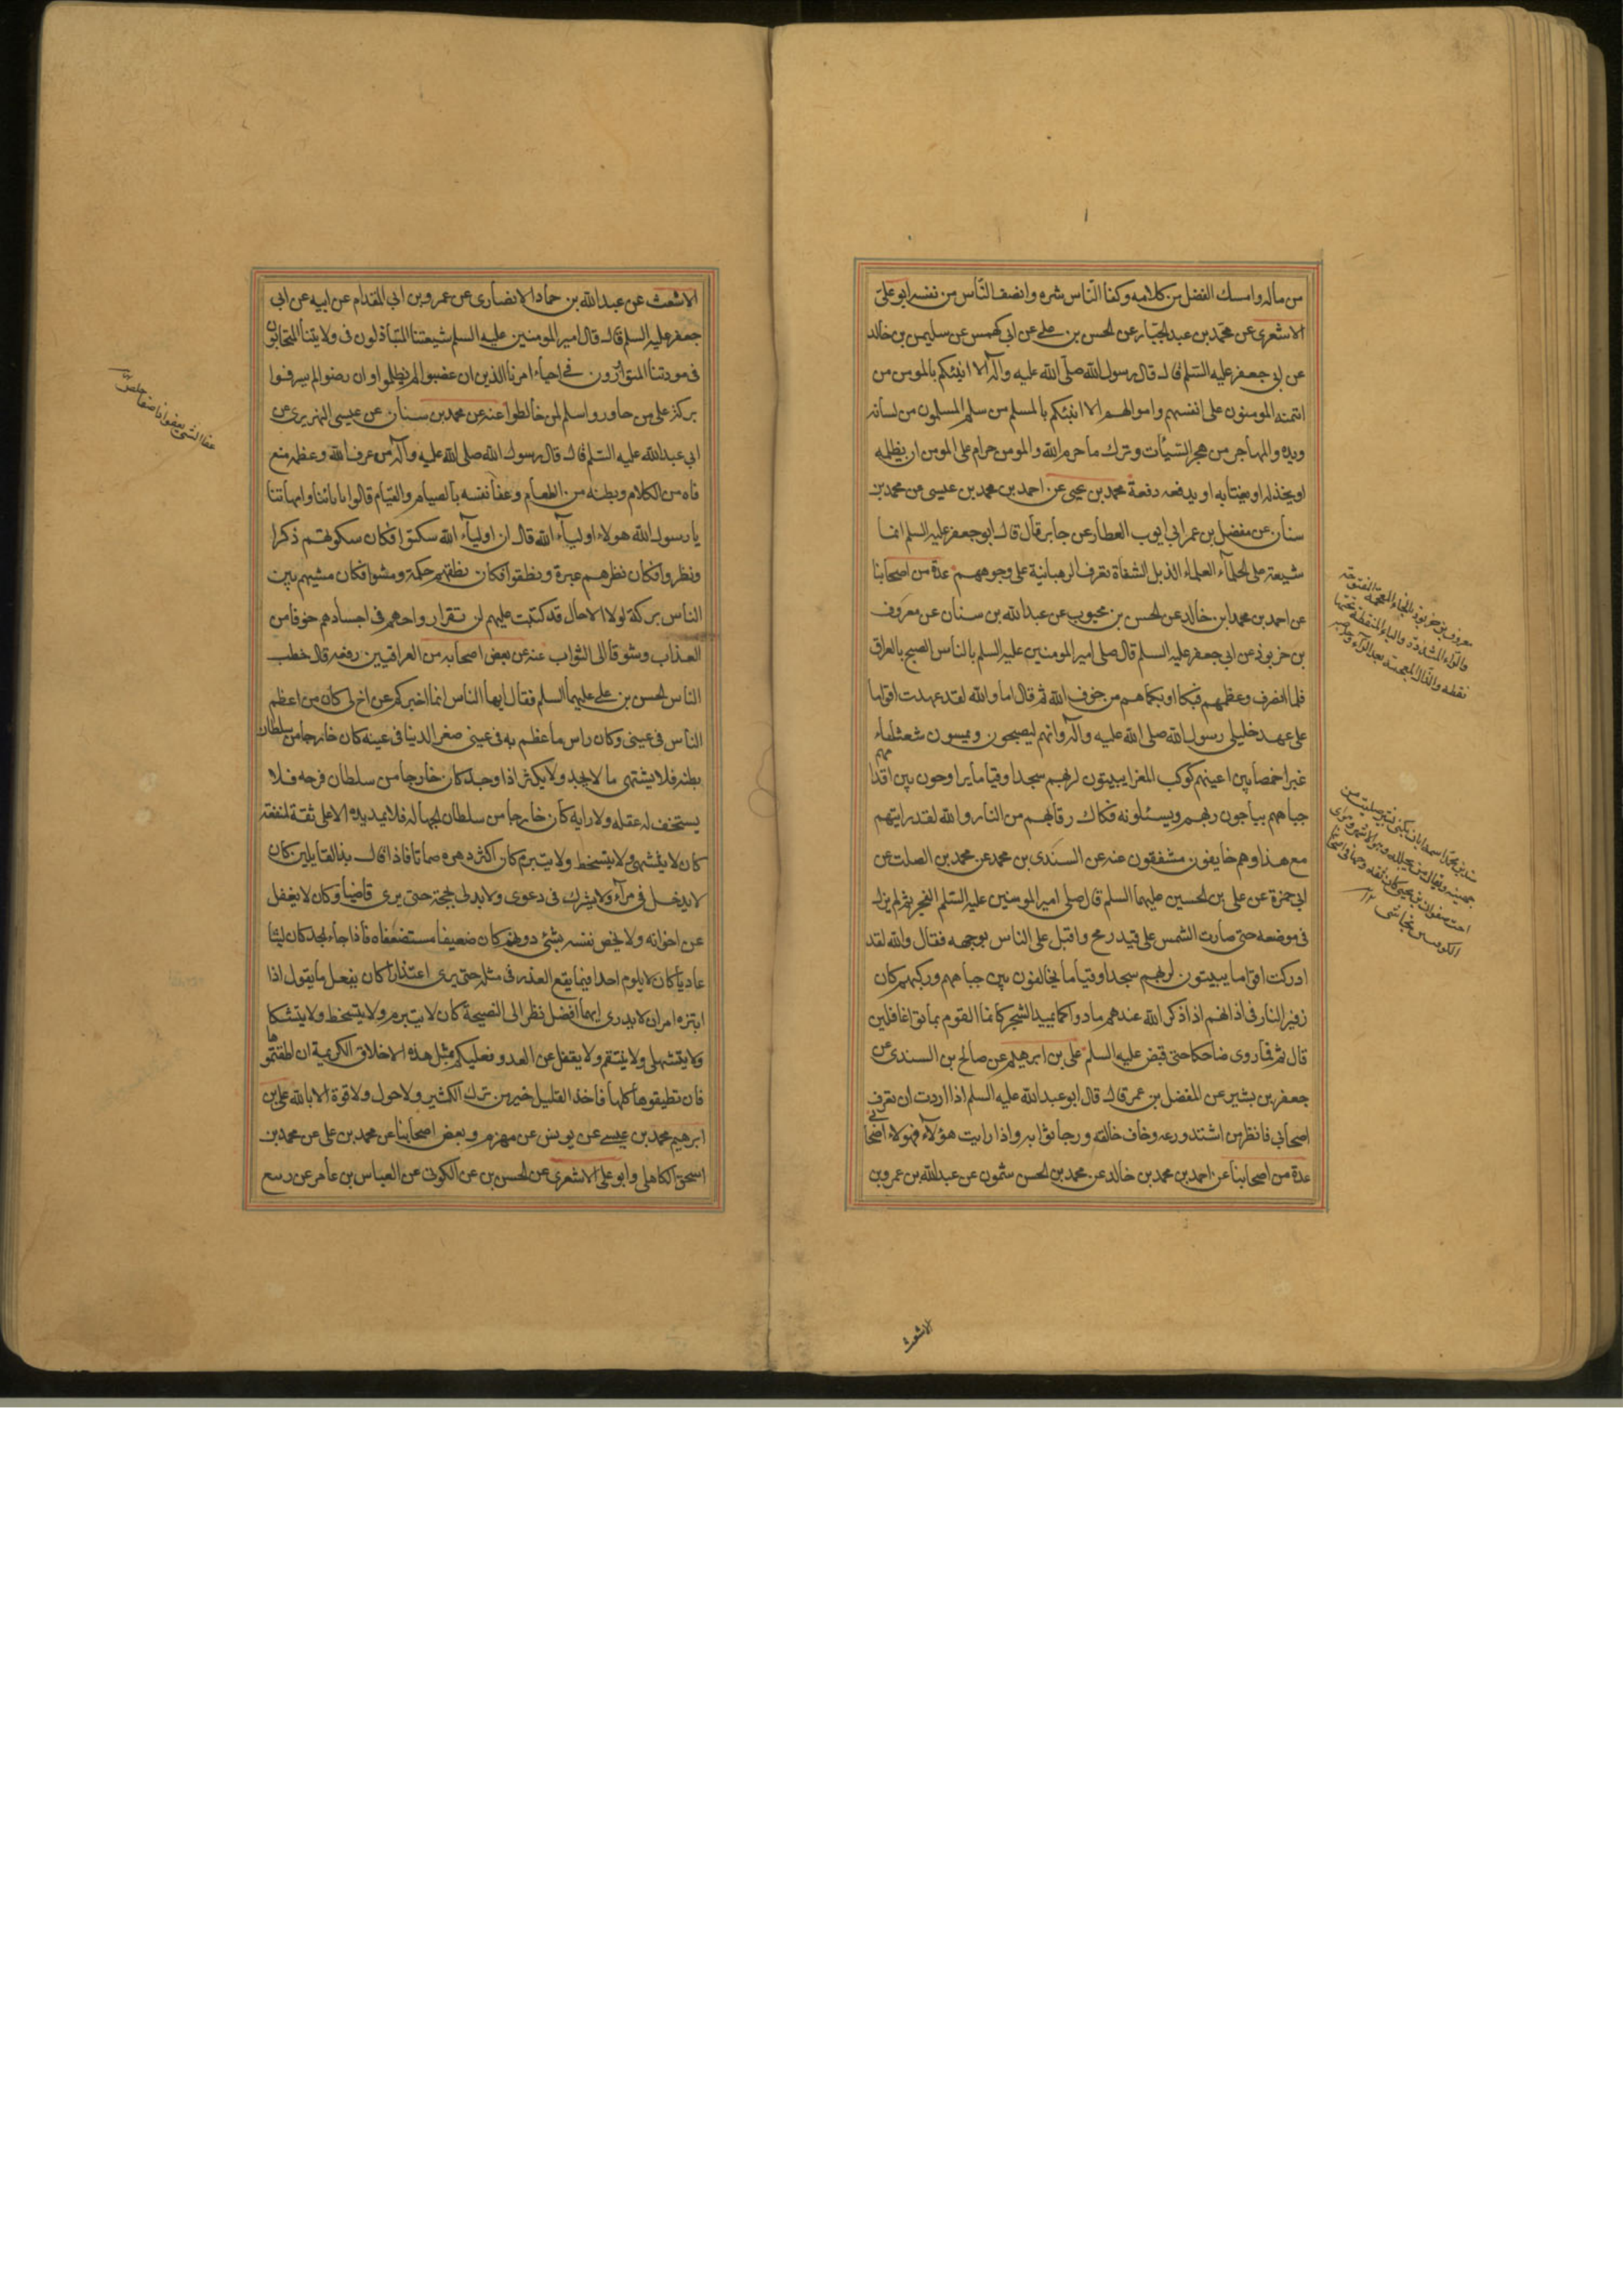 من ماله وامسك الفضل من كلامه وكفا الناس شره وانصف الناس من نفسه ابو على
الاشعرى عن محمد بن عبد الجبار عن الحسن بن على عن ابى كهمس عن سليمن بن خالد
عن ابى جعفر عليه السلم قال قال رسول الله صلى الله عليه وآله الا انبئكم بالمومن من
ائتمنه المومنون على انفسهم واموالهم الا انبئكم بالمسلم من سلم المسلمون من لسانه
ويده والمهاجر من هجر السيئات وترك ما حرم الله والمومن حرام على المومن ان يظلمه
او يخذله او يغتابه او يدفعه دفعة محمد بن يحيى عن احمد بن محمد بن عيسى عن محمد بن
سنان عن مفضل بن عمر ابى ايوب العطار عن جابر قال قال ابو جعفر عليه السلم انما
شيعة على الحلمآء العلماء الذبل الشفاة تعرف الرهبانية على وجوههم عدة من اصحابنا
عن احمد بن محمد بن خالد عن الحسن بن محبوب عن عبد الله بن سنان عن معروف
بن خربوذ عن ابى جعفر عليه السلم قال صلى امير المومنين عليه السلم بالناس الصبح بالعراق
فلما انصرف وعظهم فبكا وابكاهم من خوف الله ثم قال اما والله لقد عهدت اقواما
على عهد خليلى رسول الله صلى الله عليه وآله وانهم ليصبحون ويمسون شعثاء
غبرا خمصا بين اعينهم كركب المعزا يبيتون لربهم سجدا وقياما يراوحون بين اقدامهم
جباههم يناجون ربهم ويسئلونه فكاك رقابهم من النار والله لقد رايتهم
مع هذا وهم خايفون مشفقون عنه عن السندى بن محمد عن محمد بن الصلت عن
ابى حمزة عن على بن الحسين عليهما السلم قال صلى امير المومنين عليه السلم الفجر ثم لم يزل
فى موضعه حتى صارت الشمس على قيد رمح واقبل على الناس بوجهه فقال والله لقد
ادركت اقواما يبيتون لربهم سجدا وقياما يخالفون بين جباههم وركبهم كان
زفير النار فى اذانهم اذا ذكر الله عندهم مادوا كما يميد الشجر كانما القوم بماتوا غافلين
قال ثم قام فما روى ضاحكا حتى قبض عليه السلم على بن ابرهيم عن صالح بن السندى عن
جعفر بن بشير عن المفضل بن عمر قال قال ابو عبد الله عليه السلم اذا اردت ان تعرف
اصحابى فانظر من اشتد ورعه وخاف خالقه ورجا ثوابه واذا رايت هؤلآء فهولاء اصحابى
عدة من اصحابنا عن احمد بن محمد بن خالد عن محمد بن الحسن شمون عن عبد الله بن عمرو بن
الاشعث
الاشعث عن عبد الله بن حماد الانصارى عن عمرو بن ابى المقدام عن ابيه عن ابى
جعفر عليه السلم قال قال امير المومنين عليه السلم شيعتنا المتباذلون فى ولايتنا المتحابون
فى مودتنا المتوازرون فى احياء امرنا الذين ان غضبوا لم يظلموا وان رضوا لم يسرفوا
بركة على من جاوروا سلم لمن خالطوا عنه عن محمد بن سنان عن عيسى النهريرى عن
ابى عبد الله عليه السلم قال قال رسول الله صلى الله عليه وآله من عرف الله وعظمه منع
فاه من الكلام وبطنه من الطعام وعفا نفسه بالصيام والقيام قالوا بابائنا وامهاتنا
يا رسول الله هولاء اوليآء الله قال ان اوليآء الله سكتوا فكان سكوتهم ذكرا
ونظروا فكان نظرهم عبرة ونطقوا فكان نطقهم حكمة ومشوا فكان مشيهم بين
الناس بركة لولا الاجال قد كتبت عليهم لن تقر ارواحهم فى اجسادهم خوفا من
العذاب وشوقا الى الثواب عنه عن بعض اصحابه من العراقيين رفعه قال خطب
الناس الحسن بن على عليهما السلم فقال ايها الناس انما اخبركم عن اخ لى كان من اعظم
الناس فى عينى وكان راس ما عظم به فى عينى صغر الدينا فى عينه كان خارجا من سلطان
بطنه فلا يشتهى ما لا يجد ولا يكثر اذا وجد كان خارجا من سلطان فرجه فلا
يستخف له عقله ولا رايه كان خارجا من سلطان الجهالة فلا يمد يده الا على ثقة لمنفعة
كان لا يتشهى ولا يتسخط ولا يتبرم كان اكثر دهره صماتا فاذا قال بذ القايلين كان
لا يدخل فى مرآء ولا يشرك فى دعوى ولا يدلى بحجة حتى يرى قاضيا وكان لا يغفل
عن اخوانه ولا يخص نفسه بشئ دونهم كان ضعيفا مستضعفا فاذا جاء الجد كان ليثا
عاديا كان لا يلوم احدا فيما يقع العذر فى مثله حتى يرى اعتذارا كان يفعل ما يقول اذا
ابتزه امران لا يدرى ايهما افضل نظر الى النصيحة كان لا يتبرم ولا يتسخط ولا يتشكا
ولا يتشهى ولا ينتقم ولا يغفل عن العدو فعليكم مثل هذه الاخلاق الكريمة ان اطقتموها
فان لم تطيقوها كلها فاخذ القليل خير من ترك الكثير ولا حول ولا قوة الا بالله على بن
ابرهيم محمد بن عيسى عن يونس عن مهزم وبعض اصحابنا عن محمد بن على عن محمد بن
اسحق الكاهلى وابو على الاشعرى عن الحسن بن عن الكوفى عن العباس بن عامر عن ربيع